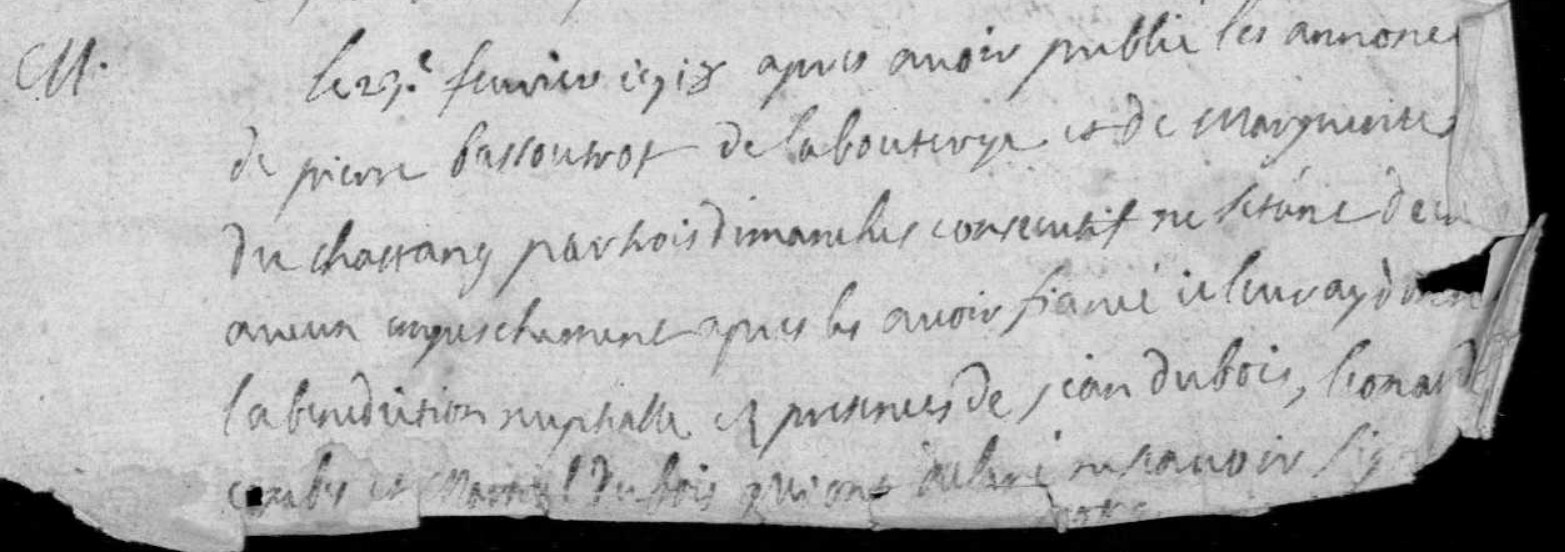 M.
le 23.e fevrier 1718 apres avoir publié les annonces
de pierre bassoutrot de labouterye et de Marguerite
du chassang par trois dimanches consecutif ne sétánt
aucun empeschement apres les avoir fiancé ie leur ay donné
la benediction nuptialle es presences de jean dubois, leonard
combes et Martial dubois qui ont declaré ne scavoir sig